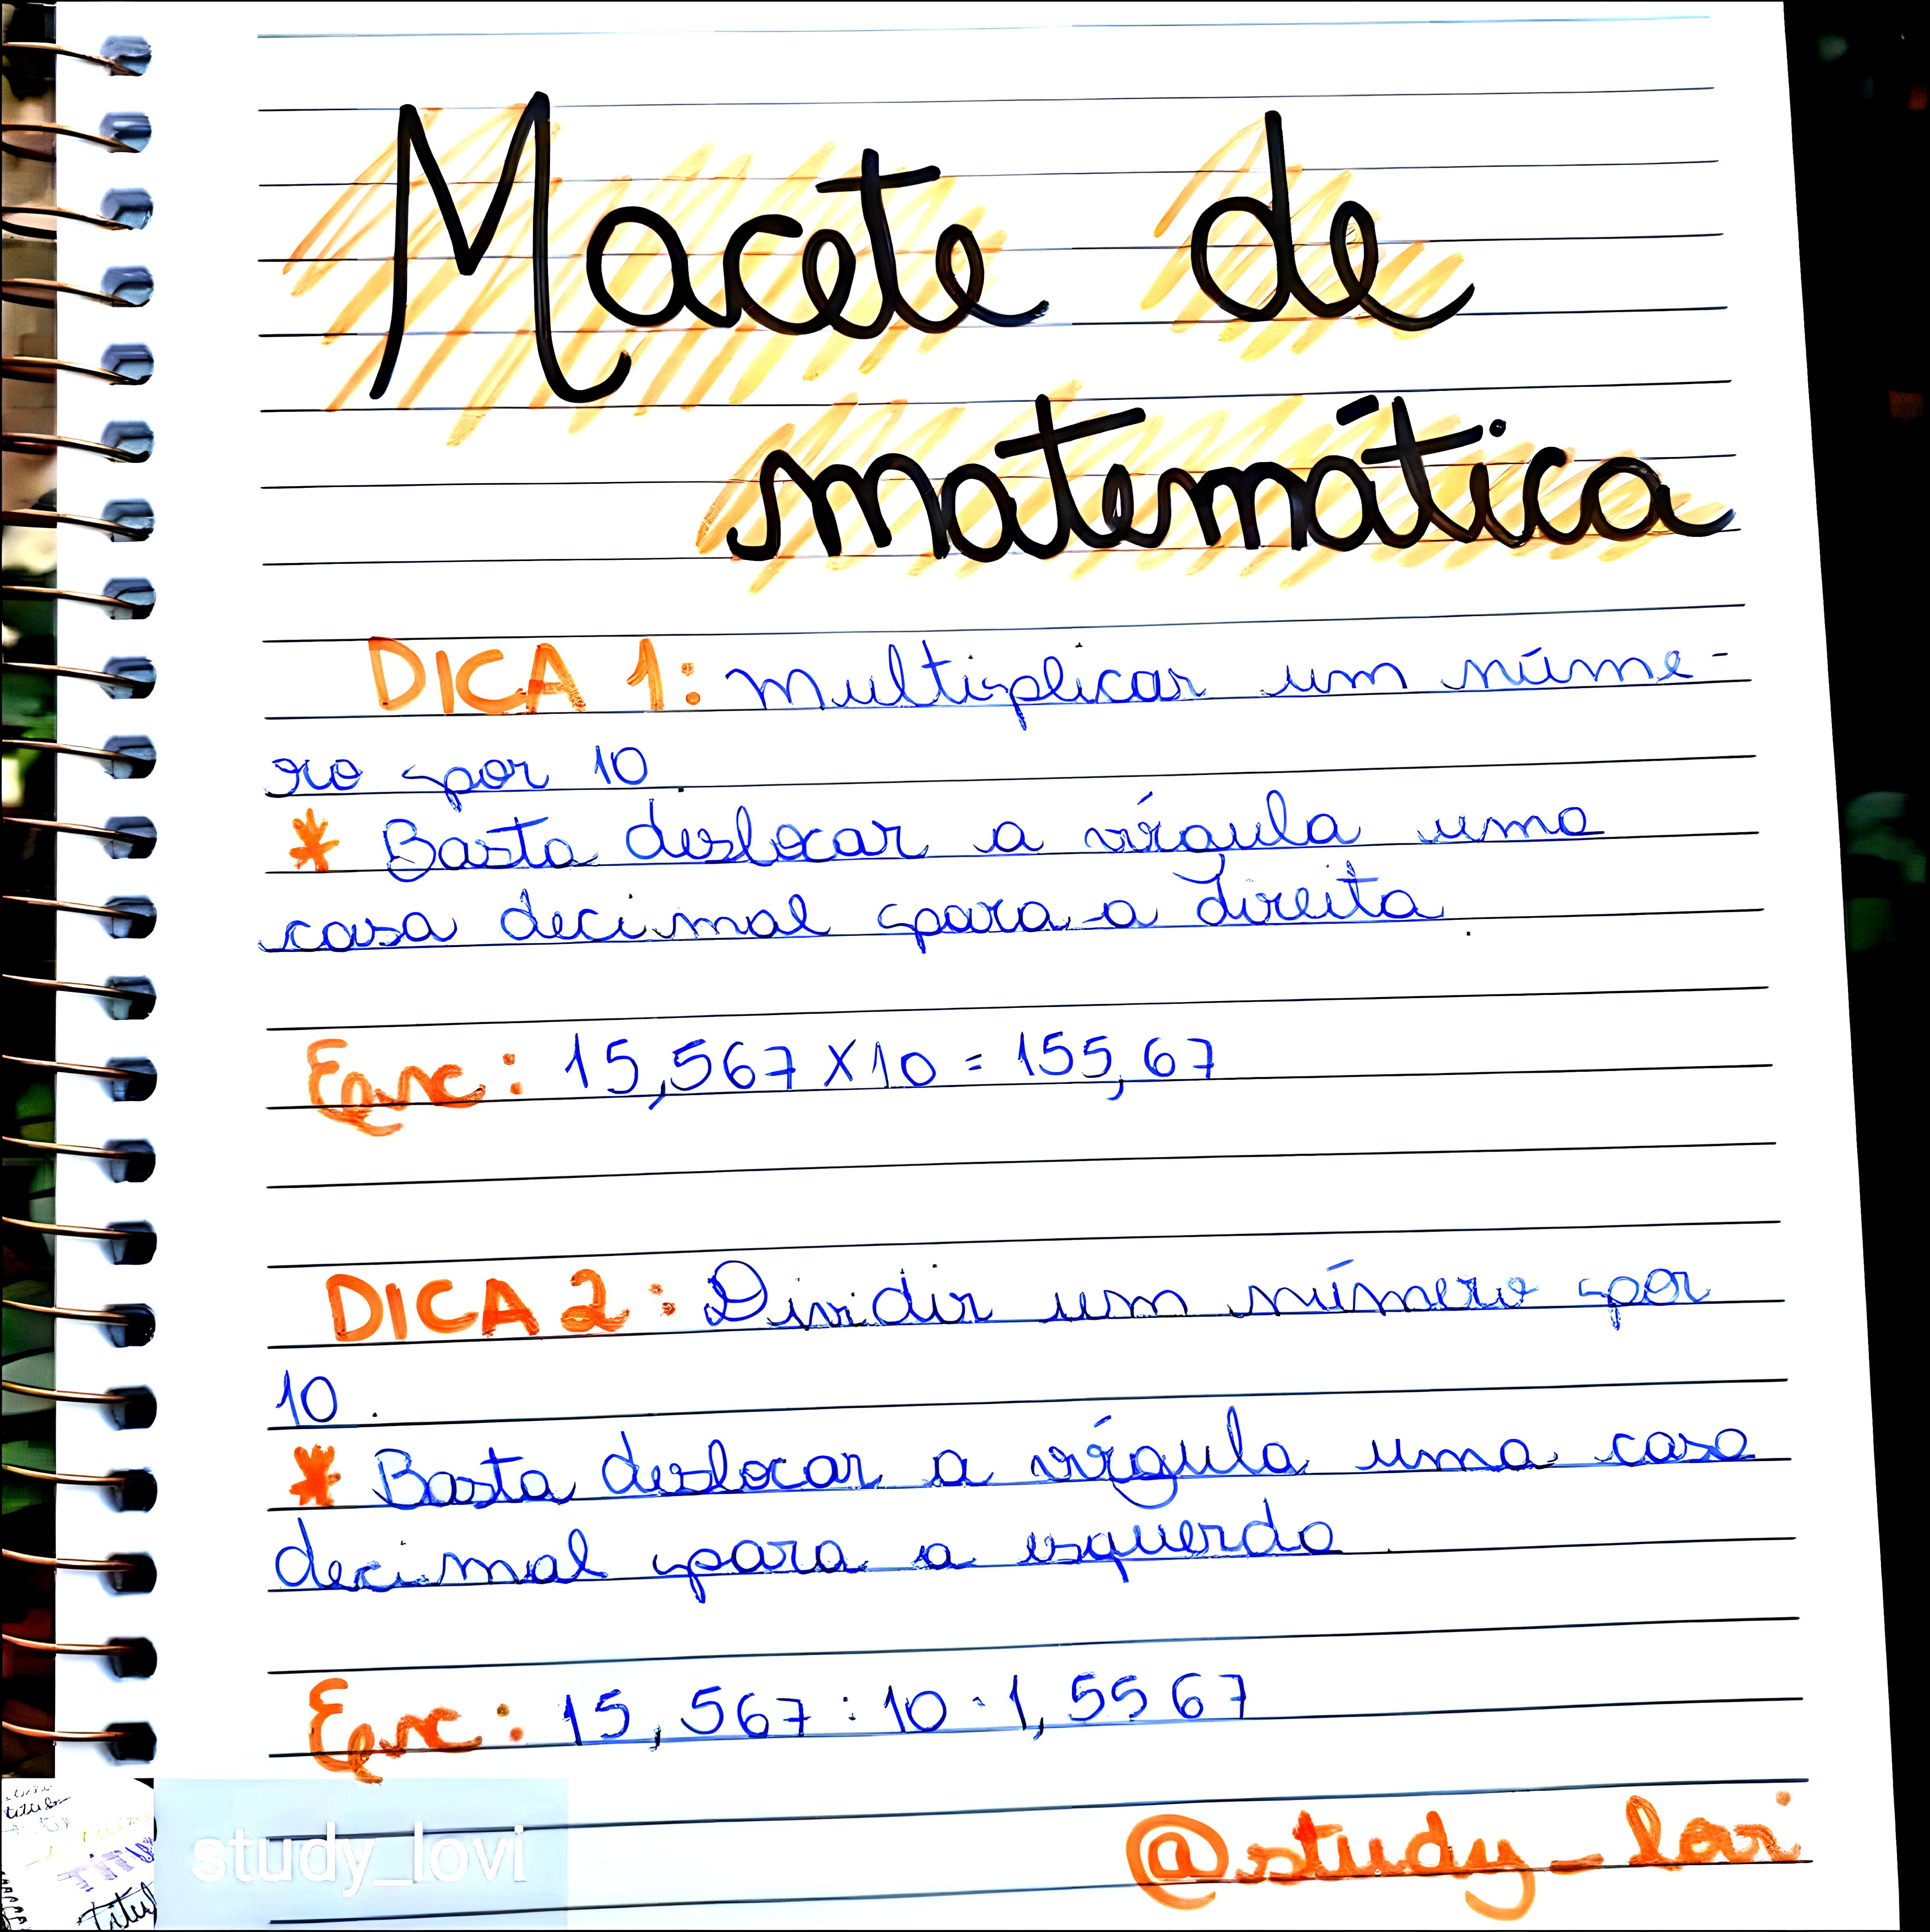 Macete de
matemática
DICA 1: Multiplicar um núme-
ro por 10.
* Basta deslocar a vírgula uma
casa decimal para a direita.
Ex: 15,567 x 10 = 155,67
DICA 2: Dividir um número por
10.
* Basta deslocar a vírgula uma casa
decimal para a esquerda.
Ex: 15,567 : 10 = 1,5567
@study_lovi
study_lovi